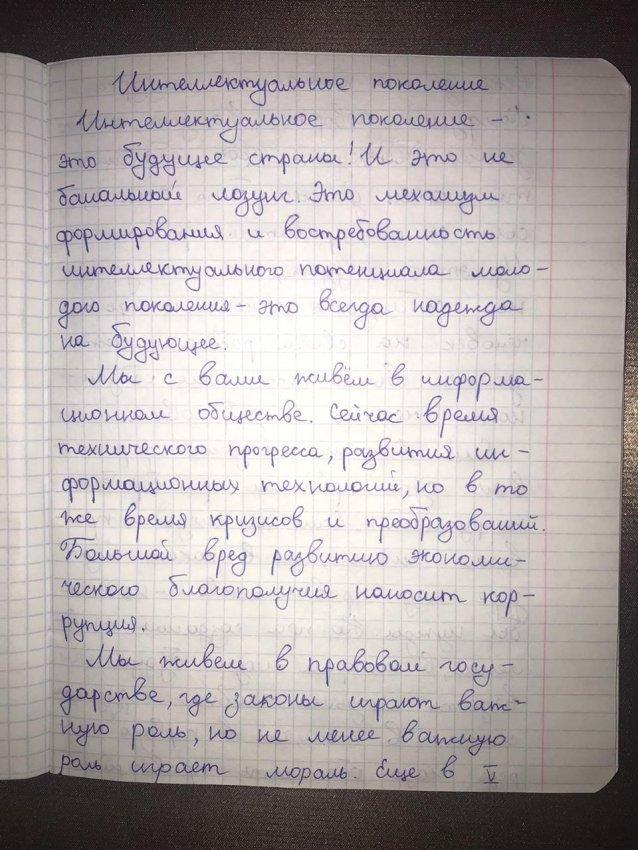 Интеллектуальное поколение
Интеллектуальное поколение -
это будущее страны! И это не
банальный лозунг. Это механизм
формирования и востребованность
интеллектуального потенциала моло-
дого поколения - это всегда надежда
на будующее.
Мы с вами живём в информа-
ционном обществе. Сейчас время
технического прогресса, развития ин-
формационных технологий, но в то
же время кризисов и преобразований.
Большой вред развитию экономи-
ческого благополучия наносит кор-
рупция.
Мы живем в правовом госу-
дарстве, где законы играют важ-
ную роль, но не менее важную
роль играет мораль. Еще в V